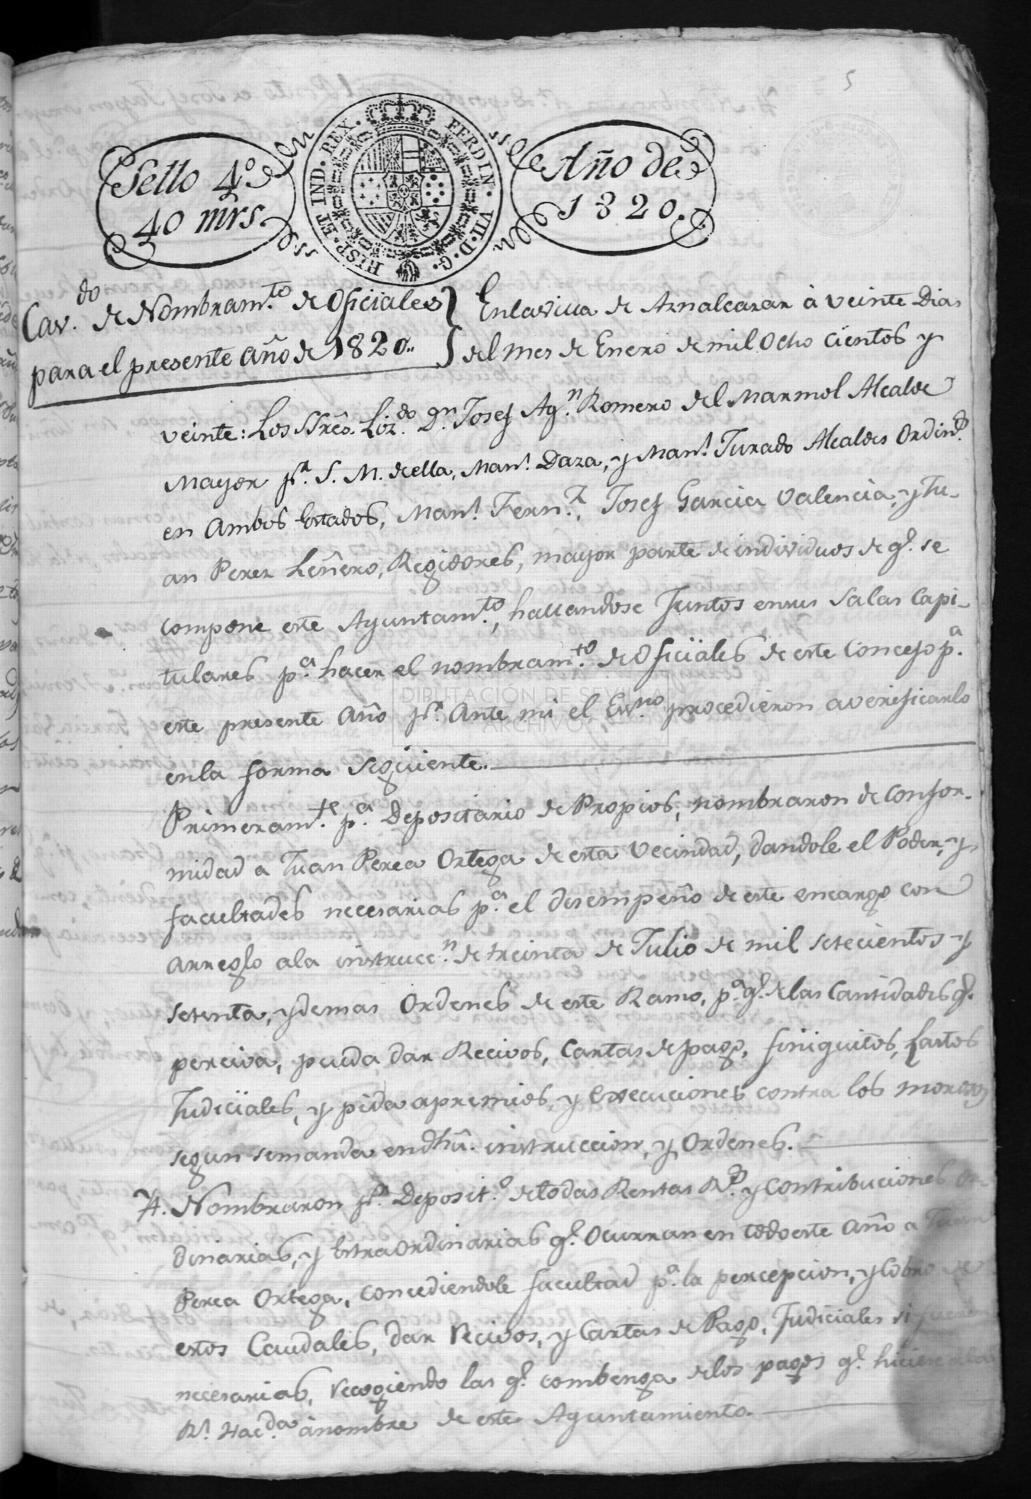 5
Sello 4º
40 mrs.
HISP. ET IND. REX. FERDIN. VII. D. G.
Año de
1820.
Cav.do de Nombram.to de Oficiales
para el presente año de 1820..
En la Villa de Aznalcazar à veinte Dias
del mes de Enero de mil Ocho cientos y
veinte: Los SSres. Liz.do D.n Josef Ag.n Romero del Marmol Alcalde
Mayor pr. S. M. de ella, Man.l Daza, y Man.l Jurado Alcaldes Ordin.s
en Ambos Estados, Man.l Fern.z, Josef Garcia Valencia, y Ju-
an Perez Leñero, Regidores, mayor parte de individuos de q.e se
compone este Ayuntam.to, hallandose Juntos en sus Salas Capi-
tulares p.a hacer el nombram.to de Oficiales de este Concejo p.a
este presente Año pr. Ante mi el Esno procedieron a verificarlo
en la forma siguiente.
Primeram.te p.a Depositario de Propios, nombraron de Confor-
midad a Juan Perea Ortega de esta Vecindad, dandole el Poder, y
facultades necesarias p.a el desempeño de este encargo con
arreglo a la instrucc.n de treinta de Julio de mil setecientos y
setenta, y demas Ordenes de este Ramo, p.a q.e de las Cantidades q.e
perciva, pueda dar Recivos, Cartas de pago, finiquitos, Lastos
Judiciales, y pida apremios, y Execuciones contra los morosos
segun se manda en dhâ. instruccion, y Ordenes.
Yt. Nombraron pr. Deposit.o de todas Rentas R.s y contribuciones Or-
dinarias, y Extraordinarias q.e Ocurran en todo este Año a Juan
Perea Ortega, concediendole facultad p.a la percepcion, y cobro de
estos Caudales, dar Recivos, y Cartas de Pago, Judiciales si fueren
necesarias, recogiendo las q.e combenga de los pagos q.e hiciere a la
R.l Hac.da à nombre de este Ayuntamiento.
DIPUTACIÓN DE SEVILLA
ARCHIVO